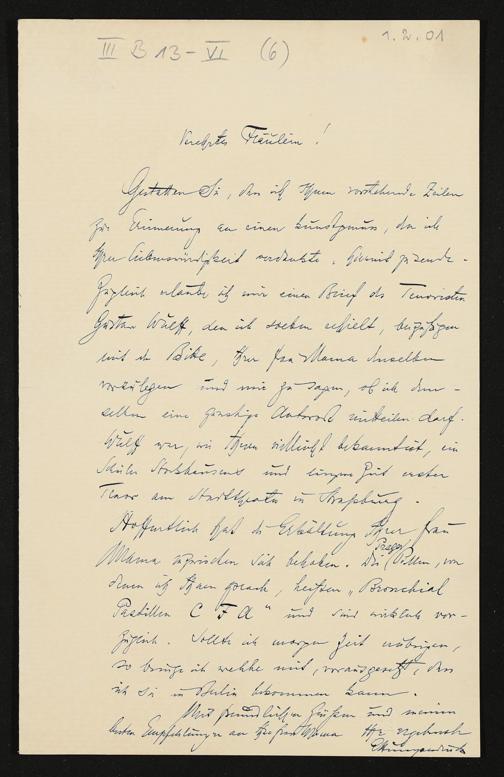 III B 13 – VI (6)
1.2.01
Verehrtes Fräulein!
Gestatten Sie, dass ich Ihnen vorstehende Zeilen
zur Erinnerung an einen Kunstgenuss, den ich
Ihrer Liebenswürdigkeit verdankte, hiermit zusende.
Zugleich erlaube ich mir einen Brief des Tenoristen
Gustav Wulff, den ich soeben erhielt, beizufügen
mit der Bitte, Ihrer Frau Mama denselben
vorzulegen und mir zu sagen, ob ich dem-
selben eine günstige Antwort mitteilen darf.
Wulff war, wie Ihnen vielleicht bekannt ist, ein
Schüler Stockhausens und einige Zeit erster
Tenor am Stadttheater in Straßburg.
Hoffentlich hat die Erkältung Ihrer Frau
Mama inzwischen sich behoben. Die Prager Pillen, von
denen ich Ihnen sprach, heißen „Bronchial
Pastillen C F A" und sind wirklich vor-
züglich. Sollte ich morgen Zeit erübrigen,
so bringe ich welche mit, vorausgesetzt, dass
ich sie in Berlin bekommen kann.
Mit freundlichen Grüßen und meinen
besten Empfehlungen an Ihre Frau Mama Ihr ergebenster